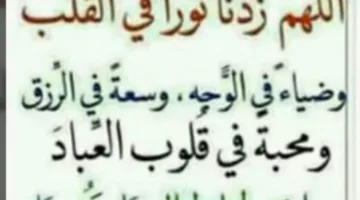 اللهم زدنا نورا في القلب
وضياءً في الوَّجه، وسعةً في الرِّزق
ومحبةً في قُلوب العِّبادَ